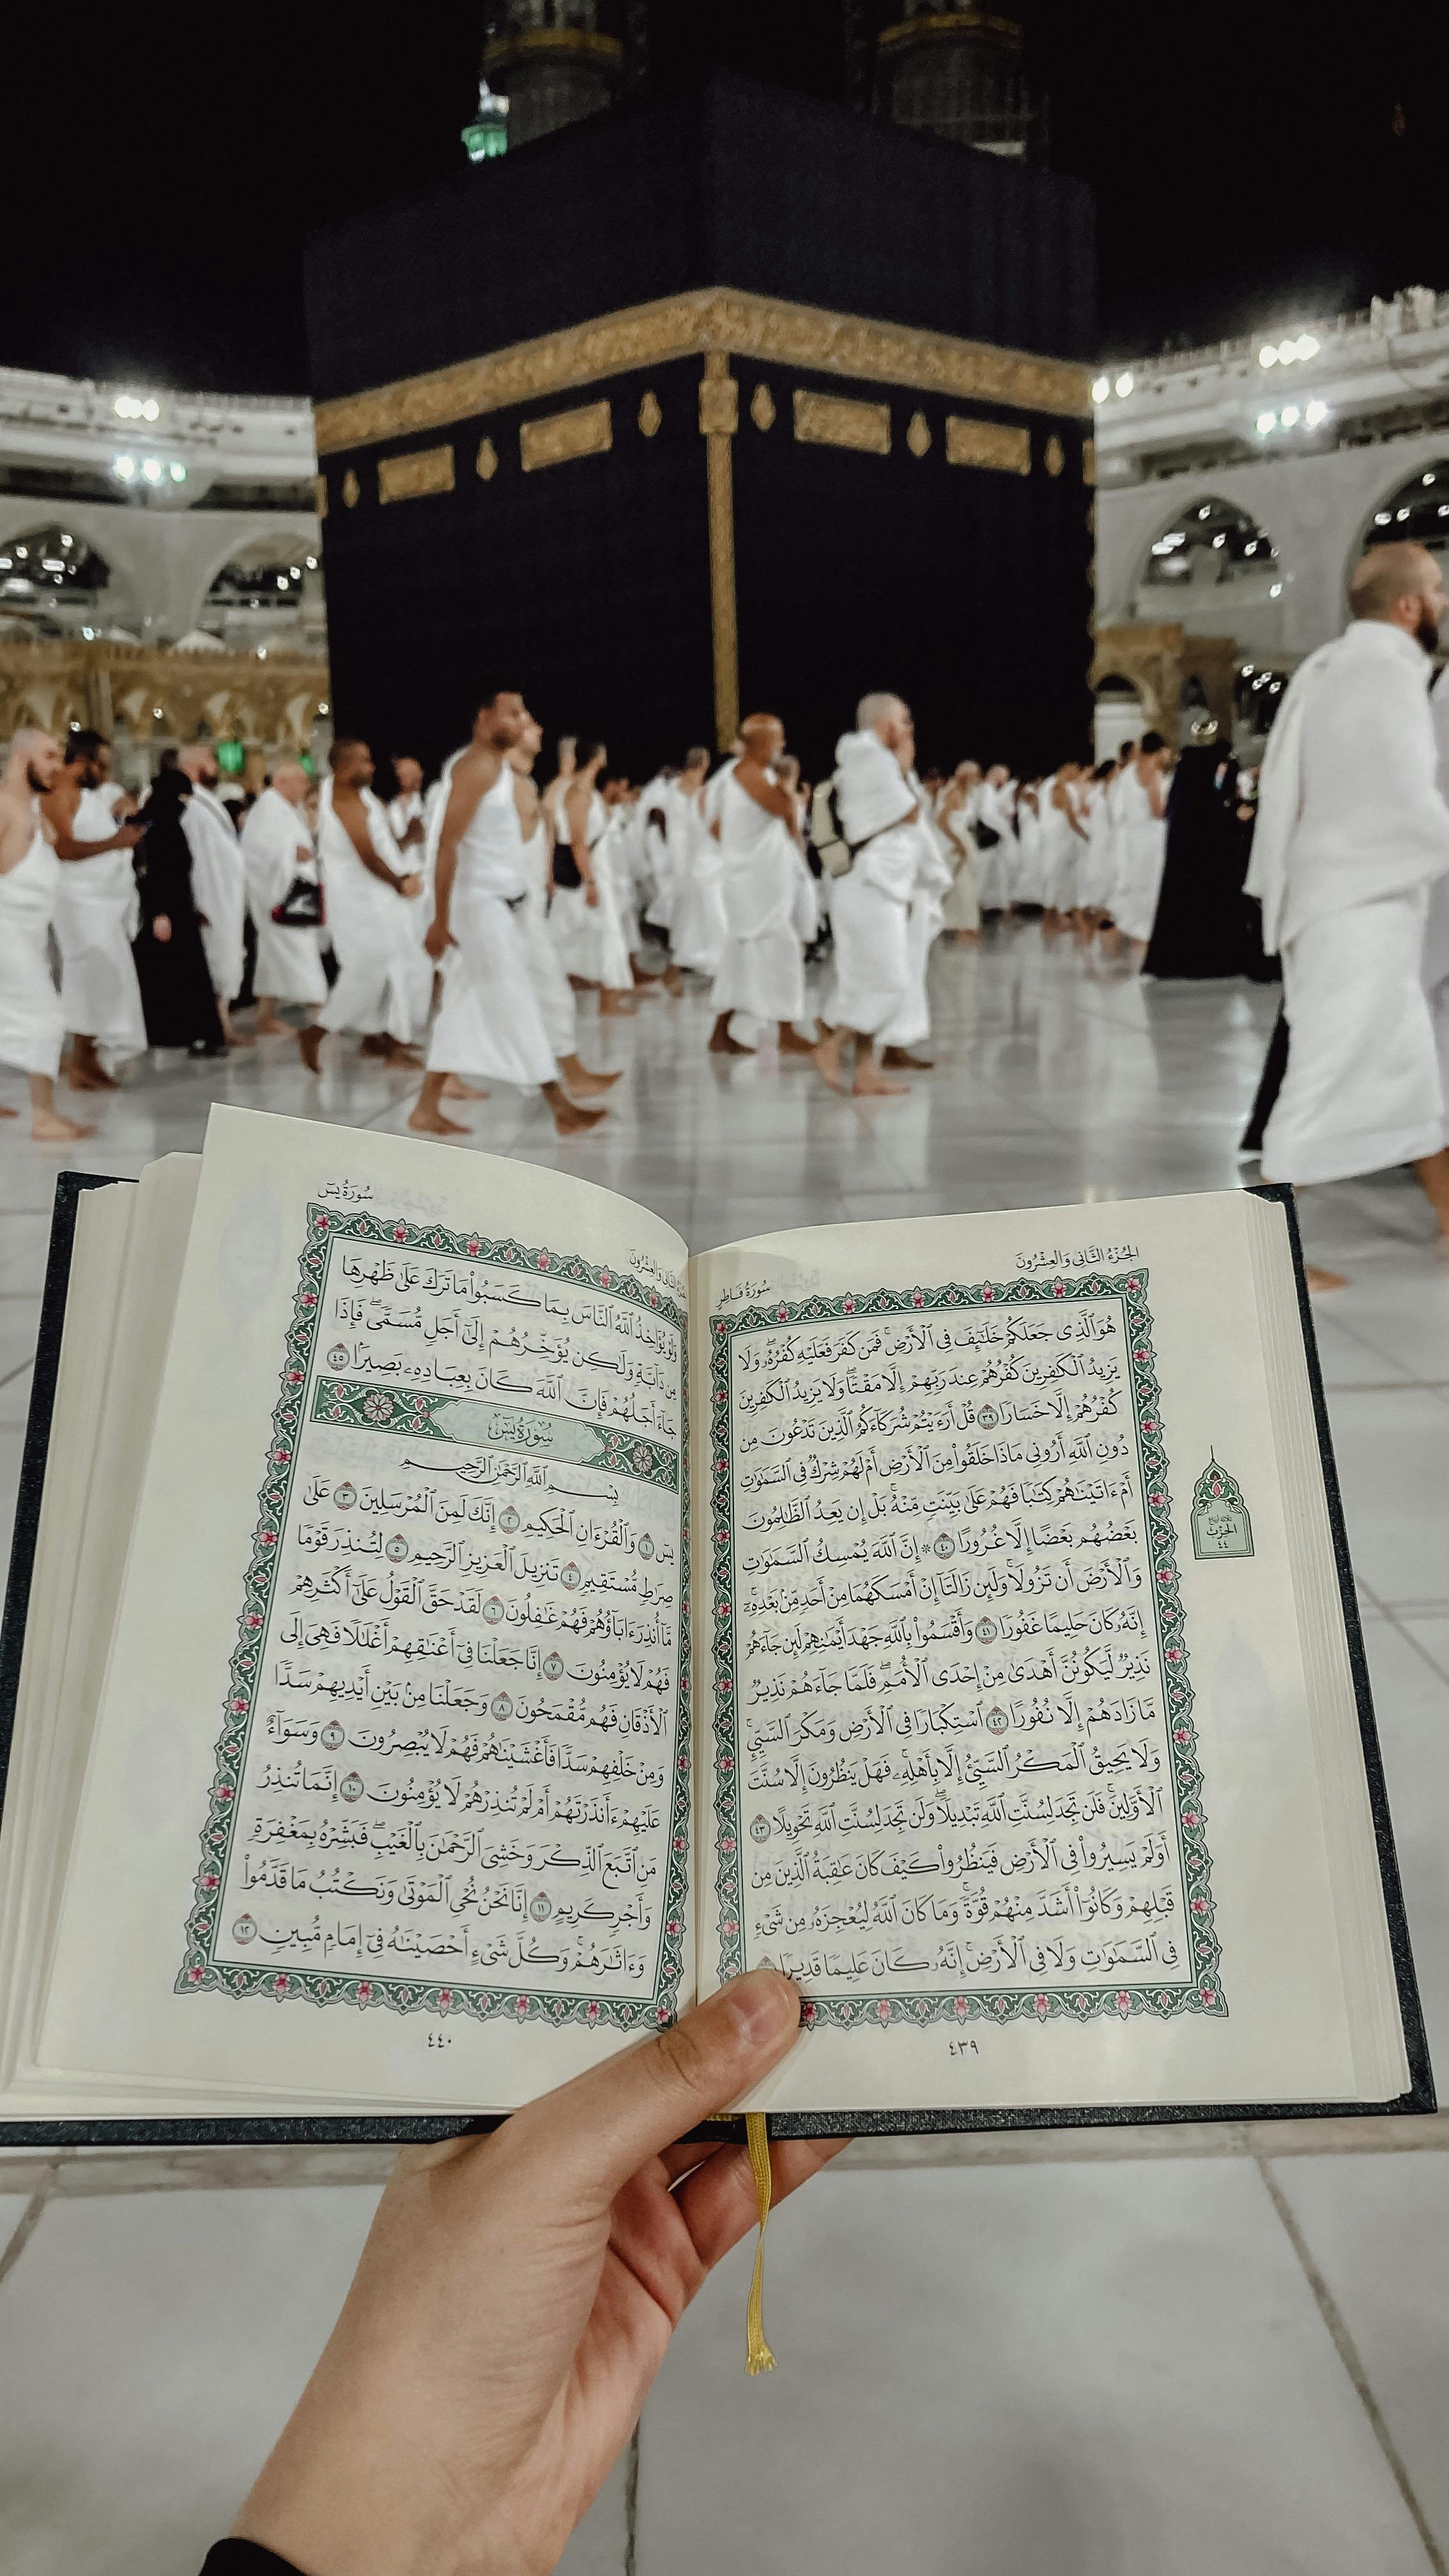 الجُزْءُ الثَّانِي وَالعِشْرُونَ
سُورَةُ فَاطِرٍ
هُوَ الَّذِي جَعَلَكُمْ خَلَٰٓئِفَ فِي الْأَرْضِ ۚ فَمَن كَفَرَ فَعَلَيْهِ كُفْرُهُۥ ۖ وَلَا
يَزِيدُ الْكَٰفِرِينَ كُفْرُهُمْ عِندَ رَبِّهِمْ إِلَّا مَقْتًا ۖ وَلَا يَزِيدُ الْكَٰفِرِينَ
كُفْرُهُمْ إِلَّا خَسَارًا ٣٩ قُلْ أَرَءَيْتُمْ شُرَكَآءَكُمُ الَّذِينَ تَدْعُونَ مِن
دُونِ اللَّهِ أَرُونِي مَاذَا خَلَقُوا۟ مِنَ الْأَرْضِ أَمْ لَهُمْ شِرْكٌ فِي السَّمَٰوَٰتِ
أَمْ ءَاتَيْنَٰهُمْ كِتَٰبًا فَهُمْ عَلَىٰ بَيِّنَتٍ مِّنْهُ ۚ بَلْ إِن يَعِدُ الظَّٰلِمُونَ
بَعْضُهُم بَعْضًا إِلَّا غُرُورًا ٤٠ ۞ إِنَّ اللَّهَ يُمْسِكُ السَّمَٰوَٰتِ
وَالْأَرْضَ أَن تَزُولَا ۚ وَلَئِن زَالَتَآ إِنْ أَمْسَكَهُمَا مِنْ أَحَدٍ مِّنۢ بَعْدِهِۦٓ ۚ
إِنَّهُۥ كَانَ حَلِيمًا غَفُورًا ٤١ وَأَقْسَمُوا۟ بِاللَّهِ جَهْدَ أَيْمَٰنِهِمْ لَئِن جَآءَهُمْ
نَذِيرٌ لَّيَكُونُنَّ أَهْدَىٰ مِنْ إِحْدَى الْأُمَمِ ۖ فَلَمَّا جَآءَهُمْ نَذِيرٌ
مَّا زَادَهُمْ إِلَّا نُفُورًا ٤٢ اسْتِكْبَارًا فِي الْأَرْضِ وَمَكْرَ السَّيِّئِ ۚ
وَلَا يَحِيقُ الْمَكْرُ السَّيِّئُ إِلَّا بِأَهْلِهِۦ ۚ فَهَلْ يَنظُرُونَ إِلَّا سُنَّتَ
الْأَوَّلِينَ ۚ فَلَن تَجِدَ لِسُنَّتِ اللَّهِ تَبْدِيلًا ۖ وَلَن تَجِدَ لِسُنَّتِ اللَّهِ تَحْوِيلًا ٤٣
أَوَلَمْ يَسِيرُوا۟ فِي الْأَرْضِ فَيَنظُرُوا۟ كَيْفَ كَانَ عَٰقِبَةُ الَّذِينَ مِن
قَبْلِهِمْ وَكَانُوٓا۟ أَشَدَّ مِنْهُمْ قُوَّةً ۚ وَمَا كَانَ اللَّهُ لِيُعْجِزَهُۥ مِن شَيْءٍ
فِي السَّمَٰوَٰتِ وَلَا فِي الْأَرْضِ ۚ إِنَّهُۥ كَانَ عَلِيمًا قَدِيرًا
الحِزْب
٤٤
٤٣٩
سُورَةُ يسٓ
وَلَوْ يُؤَاخِذُ اللَّهُ النَّاسَ بِمَا كَسَبُوا۟ مَا تَرَكَ عَلَىٰ ظَهْرِهَا
مِن دَآبَّةٍ وَلَٰكِن يُؤَخِّرُهُمْ إِلَىٰٓ أَجَلٍ مُّسَمًّى ۖ فَإِذَا
جَآءَ أَجَلُهُمْ فَإِنَّ اللَّهَ كَانَ بِعِبَادِهِۦ بَصِيرًۢا ٤٥
سُورَةُ يسٓ
بِسْمِ اللَّهِ الرَّحْمَٰنِ الرَّحِيمِ
يسٓ ١ وَالْقُرْءَانِ الْحَكِيمِ ٢ إِنَّكَ لَمِنَ الْمُرْسَلِينَ ٣ عَلَىٰ
صِرَٰطٍ مُّسْتَقِيمٍ ٤ تَنزِيلَ الْعَزِيزِ الرَّحِيمِ ٥ لِتُنذِرَ قَوْمًا
مَّآ أُنذِرَ ءَابَآؤُهُمْ فَهُمْ غَٰفِلُونَ ٦ لَقَدْ حَقَّ الْقَوْلُ عَلَىٰٓ أَكْثَرِهِمْ
فَهُمْ لَا يُؤْمِنُونَ ٧ إِنَّا جَعَلْنَا فِيٓ أَعْنَٰقِهِمْ أَغْلَٰلًا فَهِيَ إِلَى
الْأَذْقَانِ فَهُم مُّقْمَحُونَ ٨ وَجَعَلْنَا مِنۢ بَيْنِ أَيْدِيهِمْ سَدًّا
وَمِنْ خَلْفِهِمْ سَدًّا فَأَغْشَيْنَٰهُمْ فَهُمْ لَا يُبْصِرُونَ ٩ وَسَوَآءٌ
عَلَيْهِمْ ءَأَنذَرْتَهُمْ أَمْ لَمْ تُنذِرْهُمْ لَا يُؤْمِنُونَ ١٠ إِنَّمَا تُنذِرُ
مَنِ اتَّبَعَ الذِّكْرَ وَخَشِيَ الرَّحْمَٰنَ بِالْغَيْبِ ۖ فَبَشِّرْهُ بِمَغْفِرَةٍ
وَأَجْرٍ كَرِيمٍ ١١ إِنَّا نَحْنُ نُحْيِ الْمَوْتَىٰ وَنَكْتُبُ مَا قَدَّمُوا۟
وَءَاثَٰرَهُمْ ۚ وَكُلَّ شَيْءٍ أَحْصَيْنَٰهُ فِيٓ إِمَامٍ مُّبِينٍ ١٢
٤٤٠